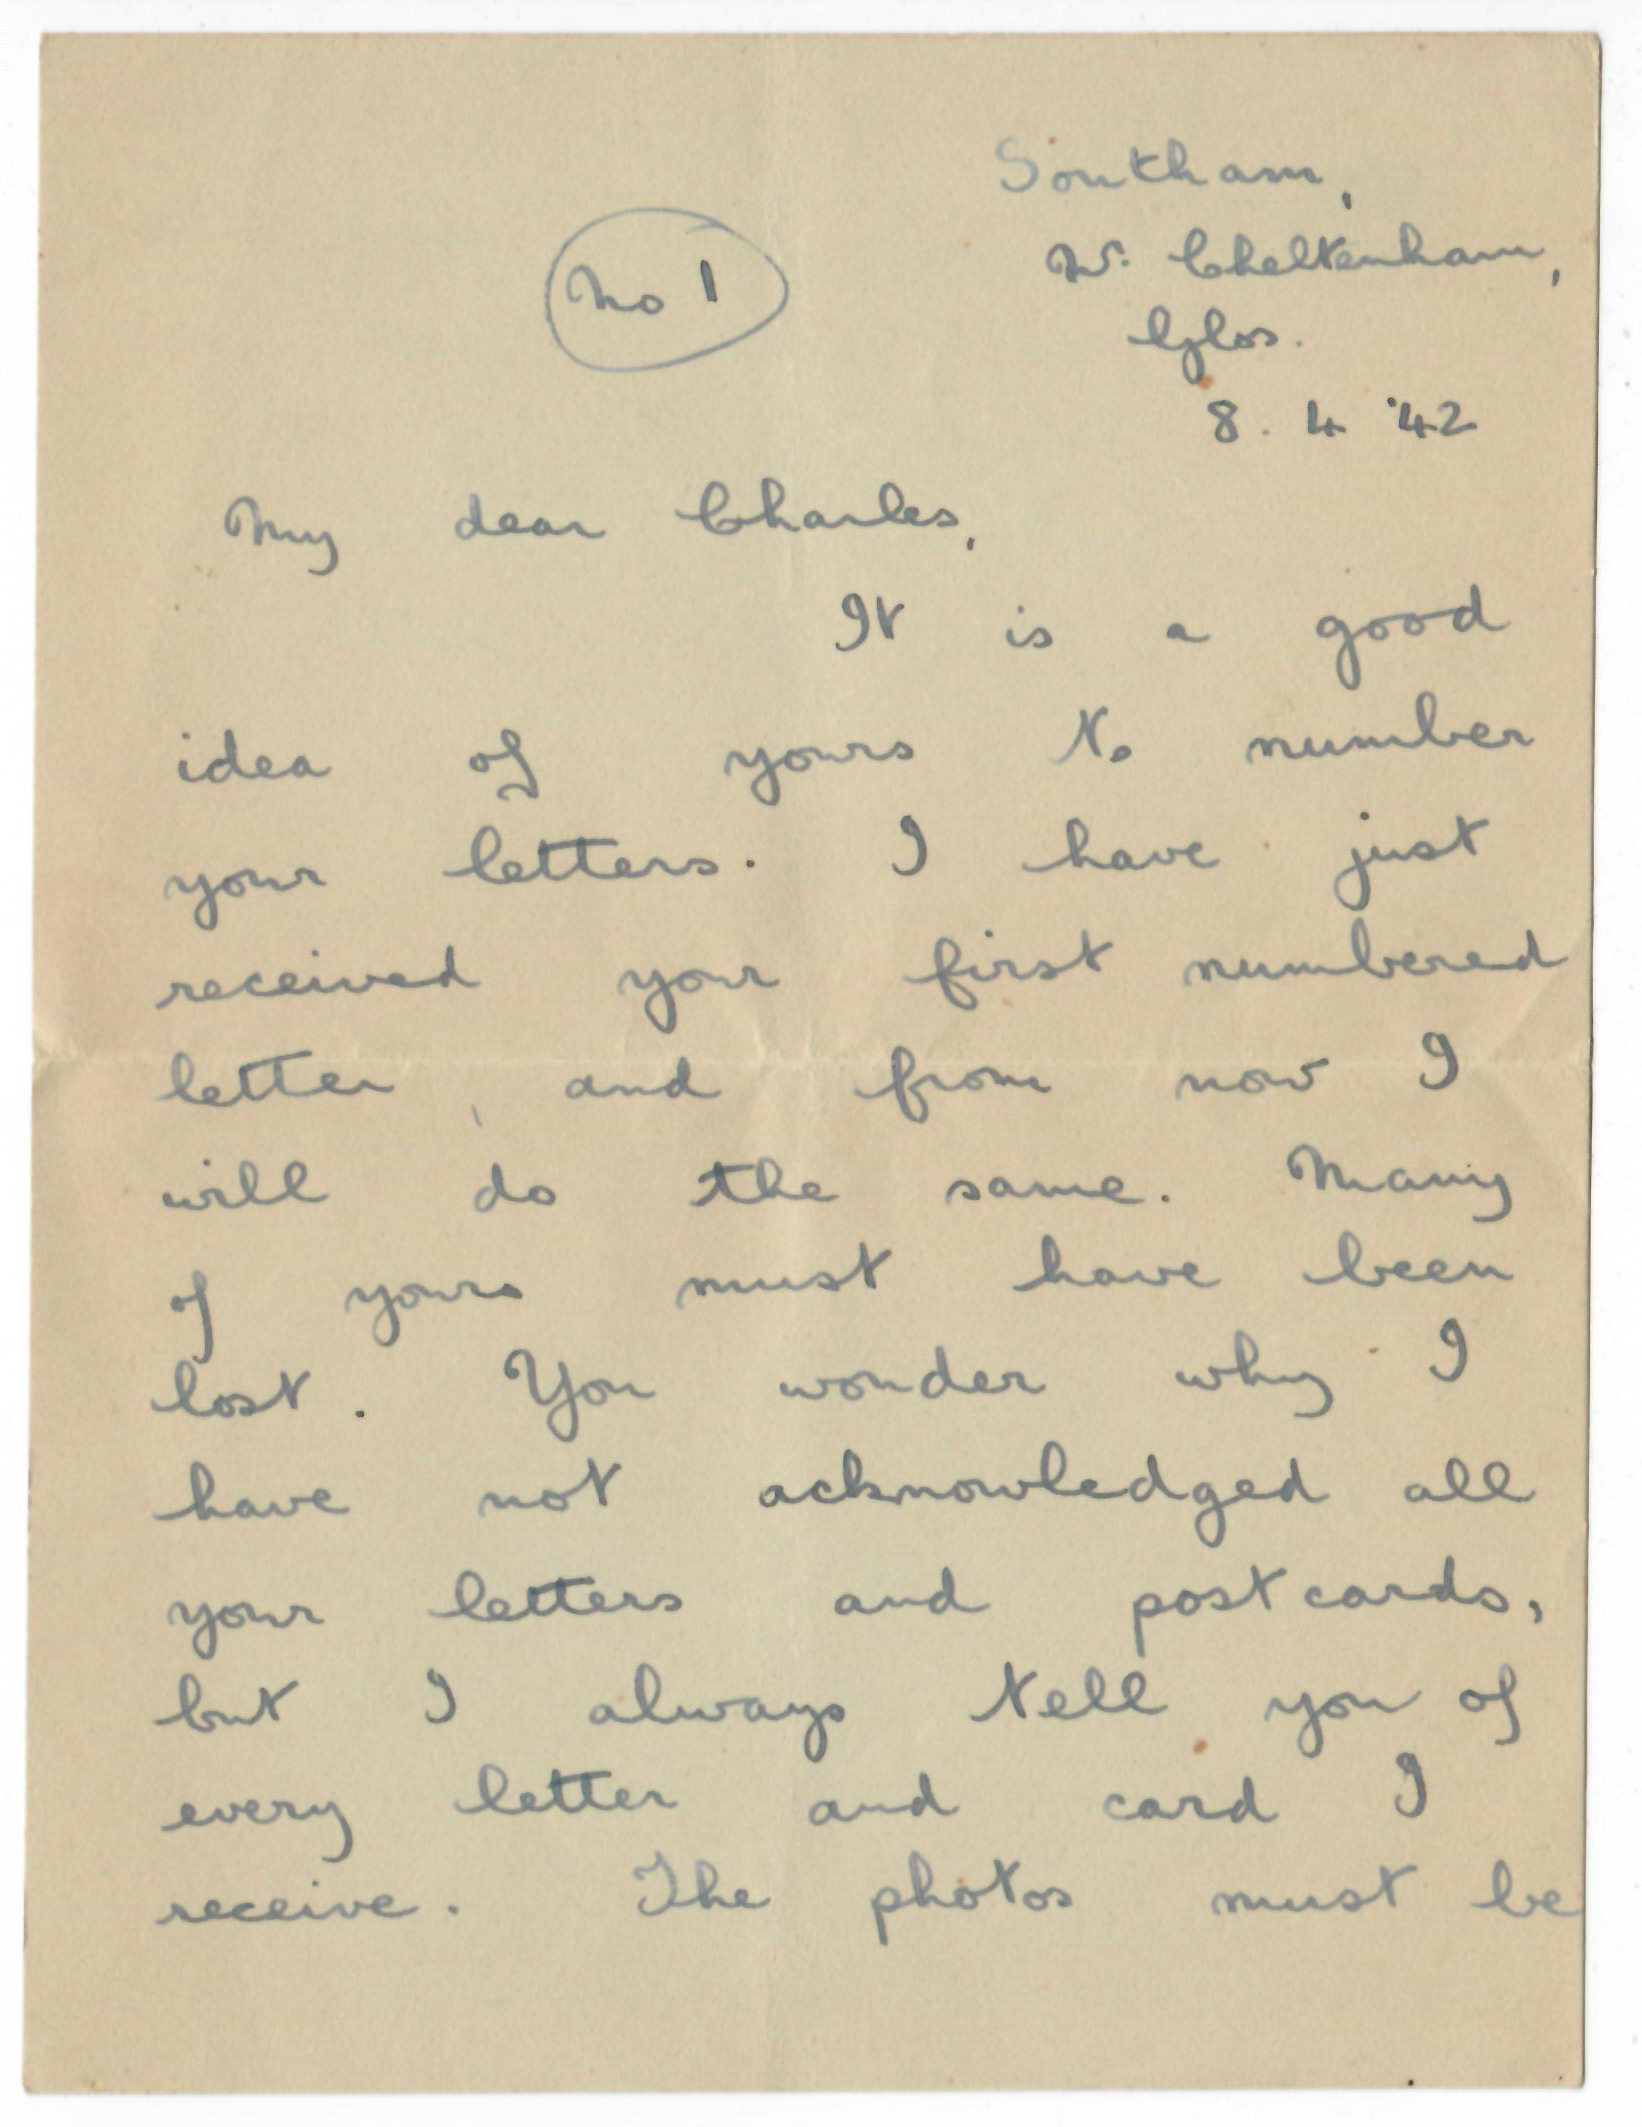 Southam,
No 1
Nr. Cheltenham,
Glos.
8. 4 '42
My dear Charles,
It is a good
idea of yours to number
your letters. I have just
received your first numbered
letter, and from now I
will do the same. Many
of yours must have been
lost. You wonder why I
have not acknowledged all
your letters and postcards,
but I always tell you of
every letter and card I
receive. The photos must be